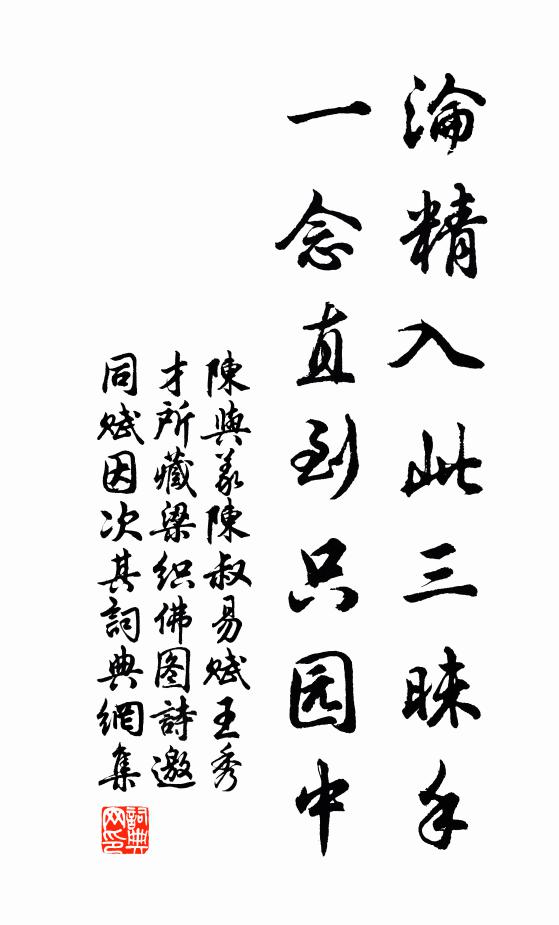 淪精入此三昧手
一念直到只园中
陳與義陳叔易賦王秀
才所藏梁织佛图詩邀
同赋因次其詞典網集
詞典网印